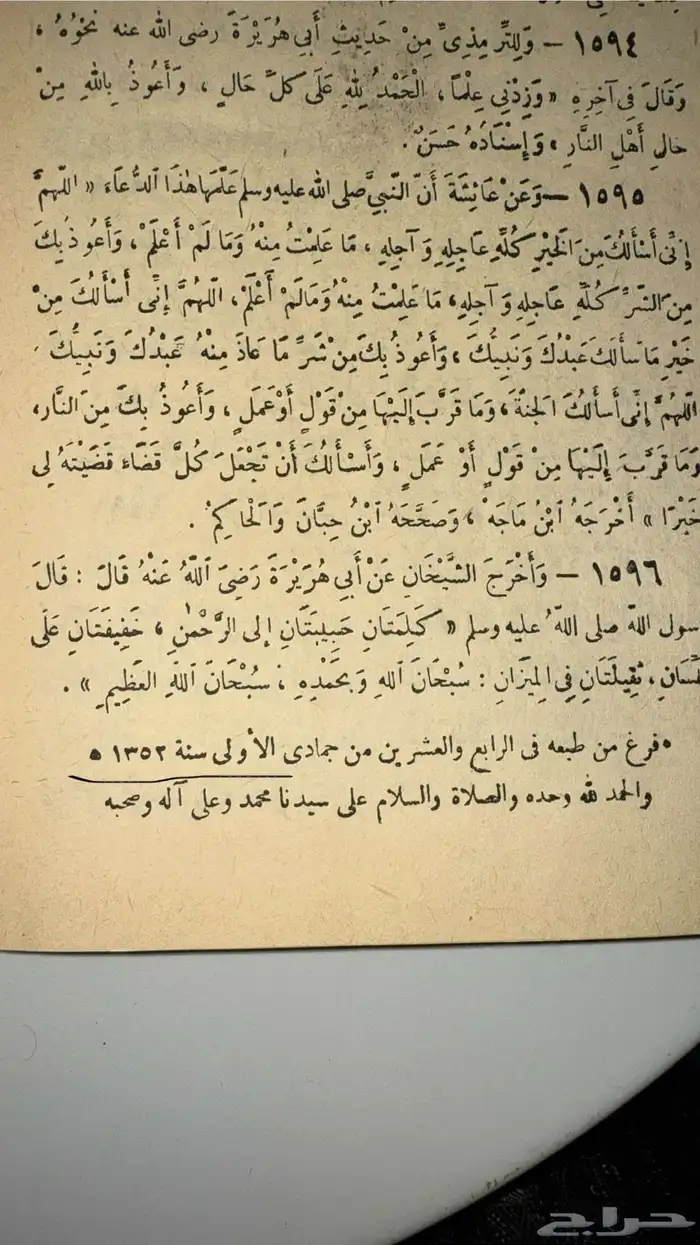 ١٥٩٤ – وَلِلتِّرْمِذِيِّ مِنْ حَدِيثِ أَبِي هُرَيْرَةَ رضى الله عنه نَحْوُهُ ،
وَقَالَ فِى آخِرِهِ « وَزِدْنِي عِلْمًا ، الْحَمْدُ لِلهِ عَلَى كُلِّ حَالٍ ، وَأَعُوذُ بِاللهِ مِنْ
حَالِ أَهْلِ النَّارِ » وَإِسْنَادُهُ حَسَنٌ .
١٥٩٥ – وَعَنْ عَائِشَةَ أَنَّ النَّبِيَّ صلى الله عليه وسلم عَلَّمَهَا هٰذَا الدُّعَاءَ « اللهمَّ
إِنِّى أَسْأَلُكَ مِنَ الْخَيْرِ كُلِّهِ عَاجِلِهِ وَآجِلِهِ ، مَا عَلِمْتُ مِنْهُ وَمَا لَمْ أَعْلَمْ ، وَأَعُوذُ بِكَ
مِنَ الشَّرِّ كُلِّهِ عَاجِلِهِ وَآجِلِهِ ، مَا عَلِمْتُ مِنْهُ وَمَالَمْ أَعْلَمْ ، اللهُمَّ إِنِّى أَسْأَلُكَ مِنْ
خَيْرِ مَا سَأَلَكَ عَبْدُكَ وَنَبِيُّكَ ، وَأَعُوذُ بِكَ مِنْ شَرِّ مَا عَاذَ مِنْهُ عَبْدُكَ وَنَبِيُّكَ ،
اللهُمَّ إِنِّى أَسْأَلُكَ الْجَنَّةَ ، وَمَا قَرَّبَ إِلَيْهَا مِنْ قَوْلٍ أَوْ عَمَلٍ ، وَأَعُوذُ بِكَ مِنَ النَّارِ ،
وَمَا قَرَّبَ إِلَيْهَا مِنْ قَوْلٍ أَوْ عَمَلٍ ، وَأَسْأَلُكَ أَنْ تَجْعَلَ كُلَّ قَضَاءٍ قَضَيْتَهُ لِى
خَيْرًا » أَخْرَجَهُ ابْنُ مَاجَهْ ، وَصَحَّحَهُ ابْنُ حِبَّانَ وَالْحَاكِمُ .
١٥٩٦ – وَأَخْرَجَ الشَّيْخَانِ عَنْ أَبِي هُرَيْرَةَ رَضِىَ اللهُ عَنْهُ قَالَ : قَالَ
سول اللهِ صلى اللهُ عليه وسلم « كَلِمَتَانِ حَبِيبَتَانِ إِلى الرَّحْمٰنِ ، خَفِيفَتَانِ عَلَى
لِّسَانِ ، ثَقِيلَتَانِ فِى الْمِيزَانِ : سُبْحَانَ اللهِ وَبِحَمْدِهِ ، سُبْحَانَ اللهِ الْعَظِيمِ » .
• فرغ من طبعه فى الرابع والعشرين من جمادى الأولى سنة ١٣٥٢ ه
والحمد لله وحده والصلاة والسلام على سيدنا محمد وعلى آله وصحبه
حراج